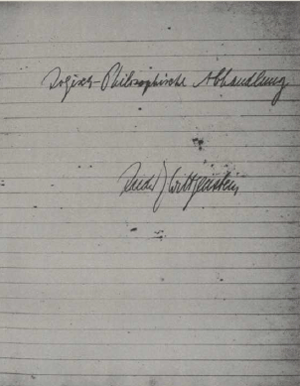 Logisch-Philosophische Abhandlung
Ludwig Wittgenstein